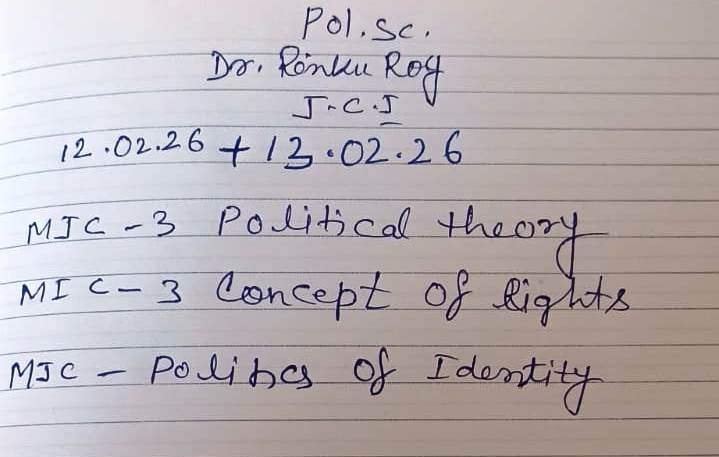 Pol. Sc.
Dr. Rinku Roy
J.C.J
12.02.26 + 13.02.26
MJC - 3 Political theory
MIC - 3 Concept of Rights
MJC - Politics of Identity